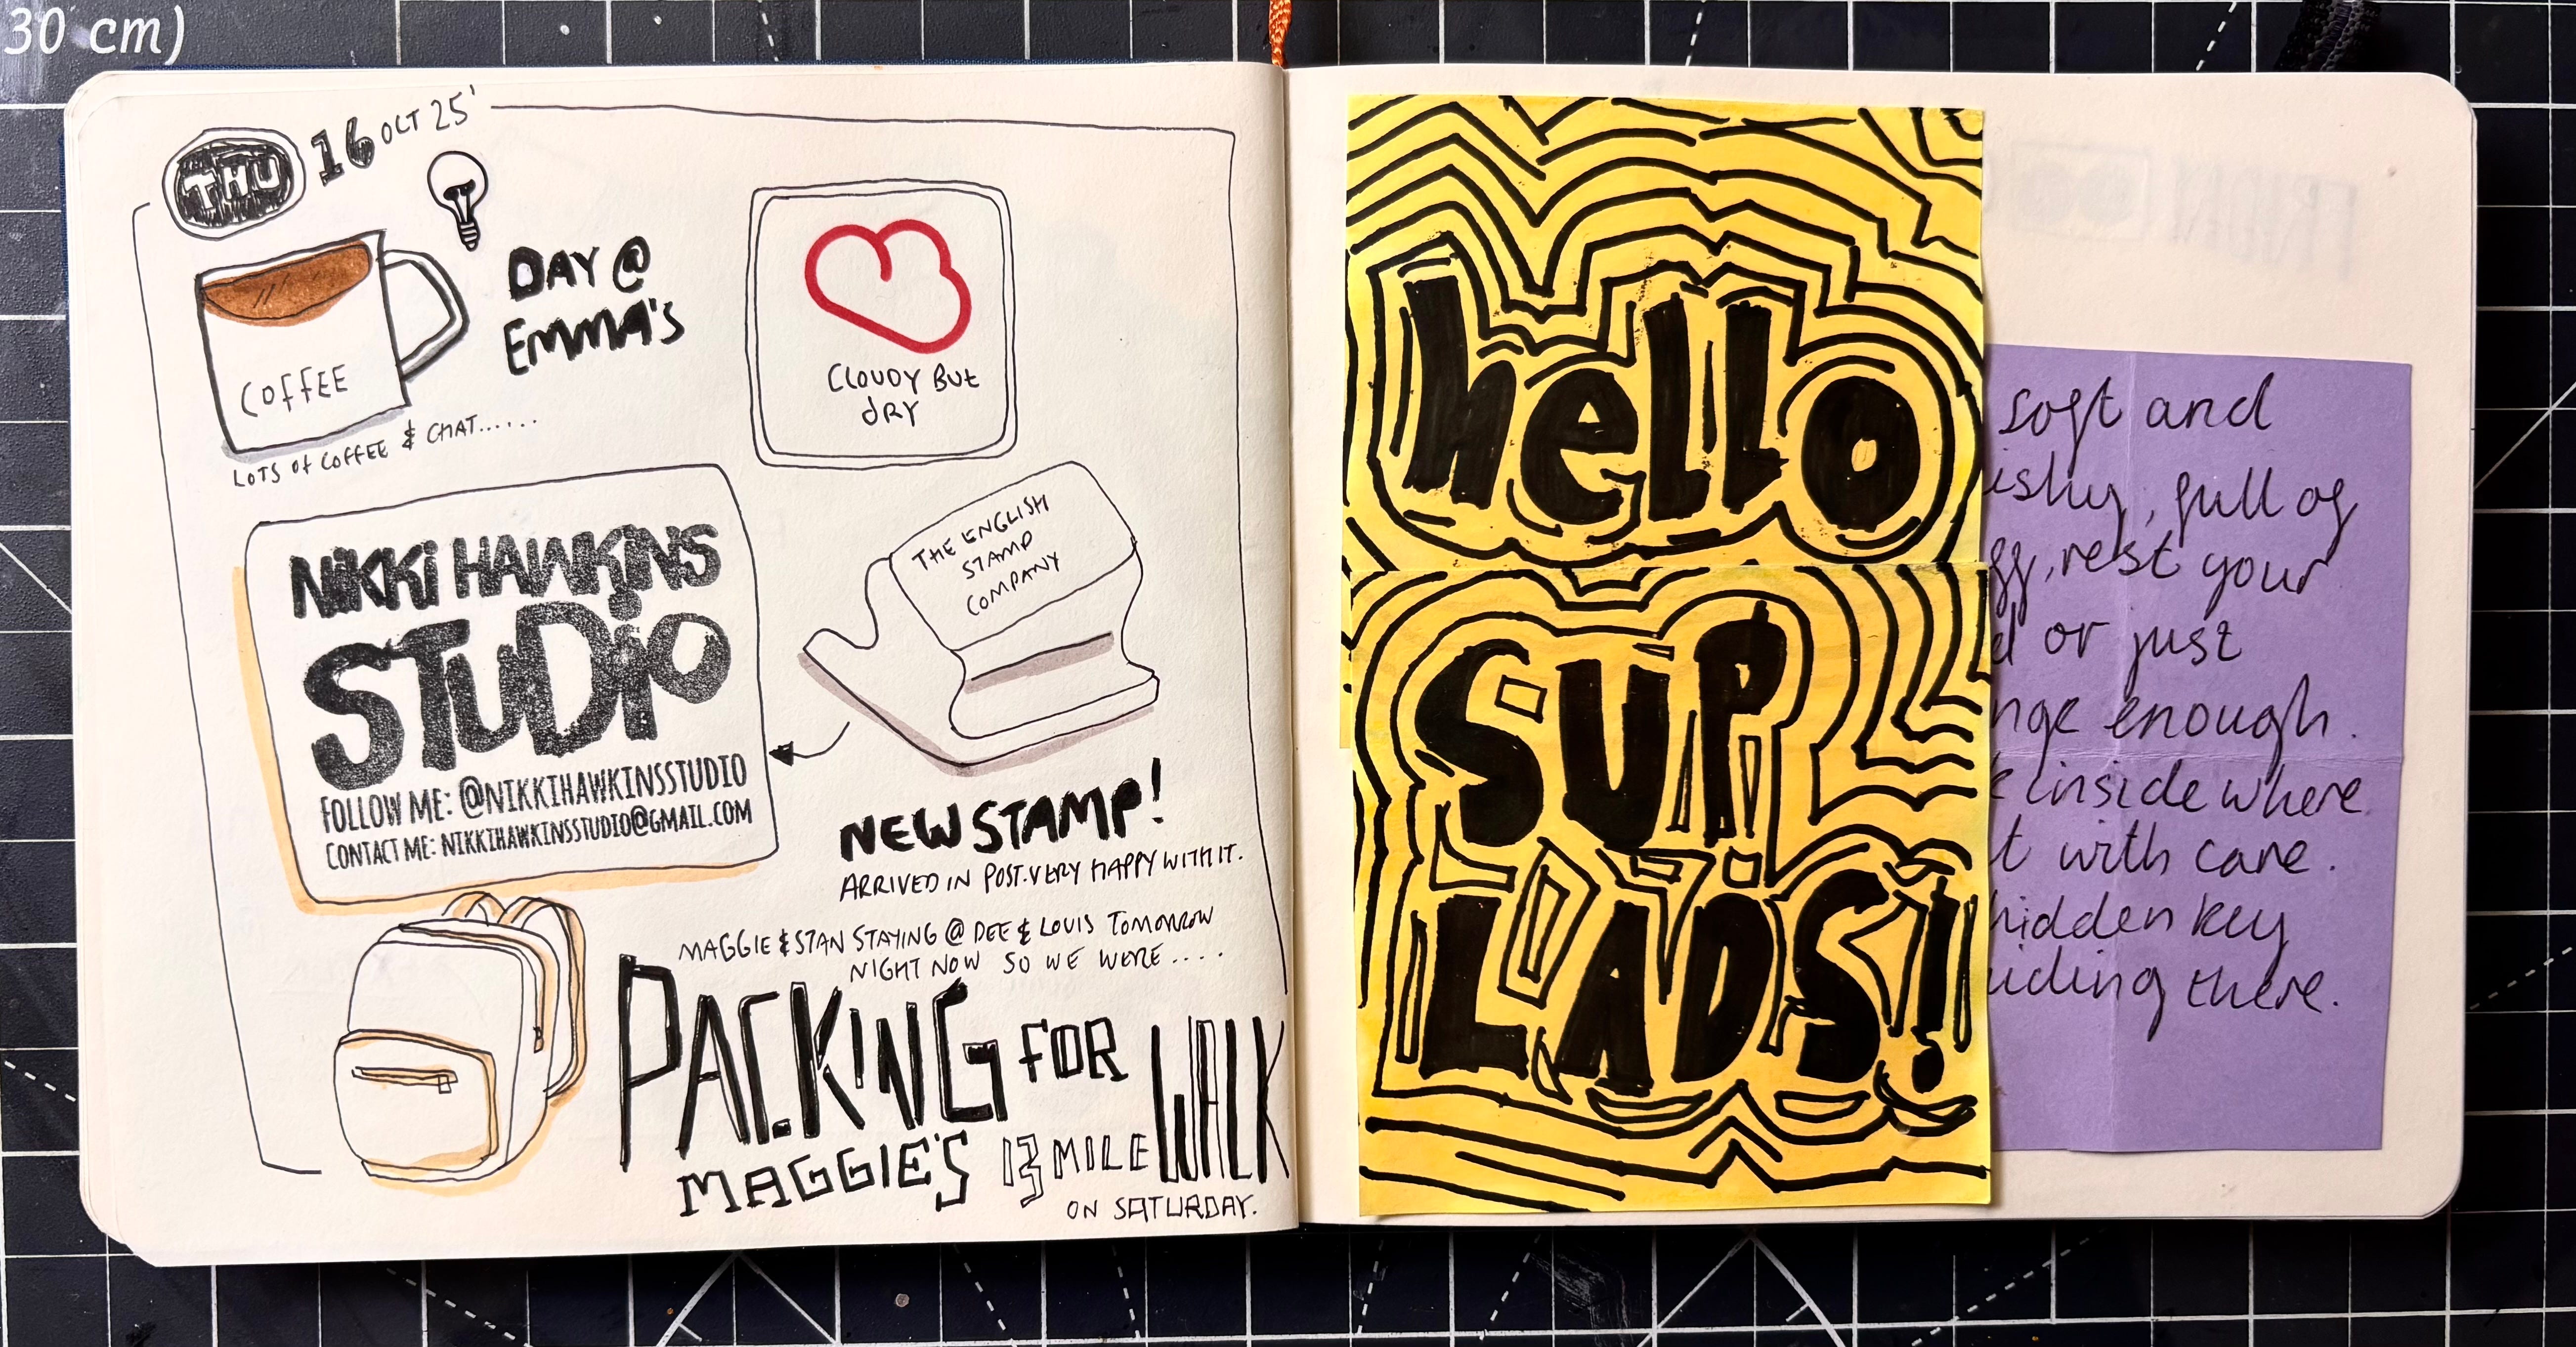 30 cm)
THU 16 OCT 25'
DAY @
EMMA'S
COFFEE
LOTS of COFFEE & CHAT......
CLOUDY BUt
dRY
NiKKi HAWKiNS
STuDio
FOLLOW ME: @NIKKIHAWKINSSTUDIO
CONTACT ME: NIKKIHAWKINSSTUDIO@GMAIL.COM
THE ENGLISH
STAMP
COMPANY
NEW STAMP!
ARRIVED IN POST. VERY HAPPY WITH IT.
MAGGIE & STAN STAYING @ DEE & LOUIS TOMORROW
NIGHT NOW SO WE WERE....
PACKING FOR WALK
MAGGIE'S 13 MILE
ON SATURDAY.
hello
SUP
LADS!
soft and
ishy, full of
rest your
or just
nge enough.
inside where
t with care.
hidden key
uiding there.